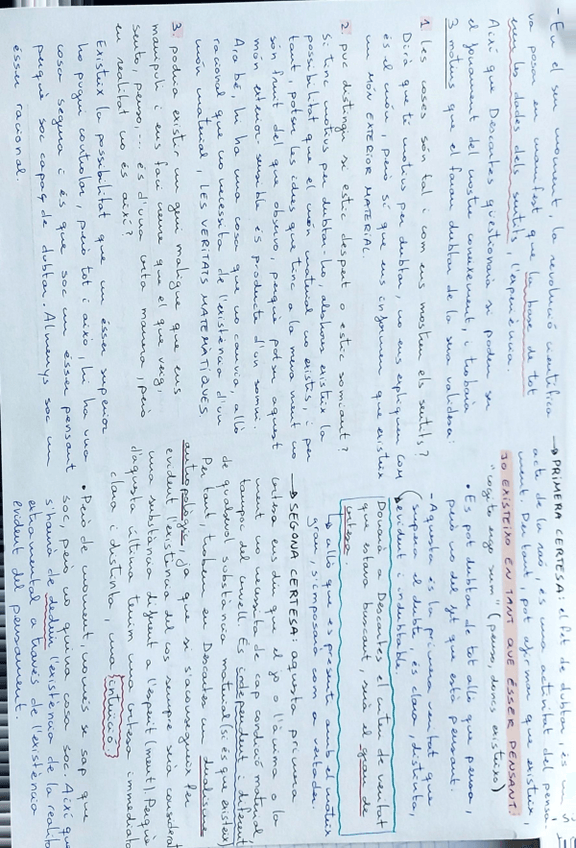 - En el seu moment, la revolució científica
va posar en manifest que la base de tot
eren les dades dels sentits, l'experiència.
Així que Descartes qüestionarà si poden ser
el fonament del nostre coneixement, i trobarà
3 motius que el faran dubtar de la seva validesa:
1. les coses són tal i com ens mostren els sentits?
Dirà que té motius per dubtar, no ens expliquen com
és el món, però sí que ens informen que existeix
un MÓN EXTERIOR MATERIAL.
2. puc distingir si estic despert o estic somiant?
Si tenc motius per dubtar-ho, aleshores existeix la
possibilitat que el món material no existeix, i per
tant, poten les idees que tinc a la meva ment no
són fruit del que observo, perquè potser aquest
món exterior sensible és producte d'un somni.
Ara bé, hi ha una cosa que no canvia, allò
racional que no necessita de l'existència d'un
món material, LES VERITATS MATEMÀTIQUES.
3. podria existir un geni maligne que ens
manipuli i ens faci creure que el que veig,
sento, penso,... és d'una certa manera, però
en realitat no és així?
Existeix la possibilitat que un ésser superior
ho pugui controlar, però tot i això, hi ha una
cosa segura i és que soc un ésser pensant
perquè soc capaç de dubtar. Almenys soc un
ésser racional.
→ PRIMERA CERTESA: el fet de dubtar, és un
acte de la raó, és una activitat del pensa
ment. Per tant, pot afirmar que existeix,
JO EXISTEIXO EN TANT QUE ÉSSER PENSANT.
"cogito ergo sum" (penso, doncs existeixo)
• Es pot dubtar de tot allò que penso,
però no del fet que està pensant.
- Aquesta és la primera veritat que
supera el dubte, és clara, distinta,
evident i indubtable.
Donarà Descartes el criteri de veritat
que estava buscant, serà el grau de
certesa
→ allò que es presenti amb el mateix
grau, s'imposarà com a vertader.
→ SEGONA CERTESA: aquesta primera
certesa ens diu que el jo o l'ànima o la
ment no necessita de cap condició material,
tampoc del cervell. És independent i diferent
de qualsevol substància material (si és que existeix)
Per tant, trobem en Descartes un dualisme
antropològic, ja que si s'aconsegueix fer
evident l'existència del cos sempre serà considerat
una substància diferent a l'esperit (ment). Perquè
d'aquesta última tenim una certesa immediata
clara i distinta, una intuïció.
• Però de moment, només se sap que
soc, però no quina cosa soc. Així que
s'haurà de deduir l'existència de la realitat
extramental a través de l'existència
evident del pensament.